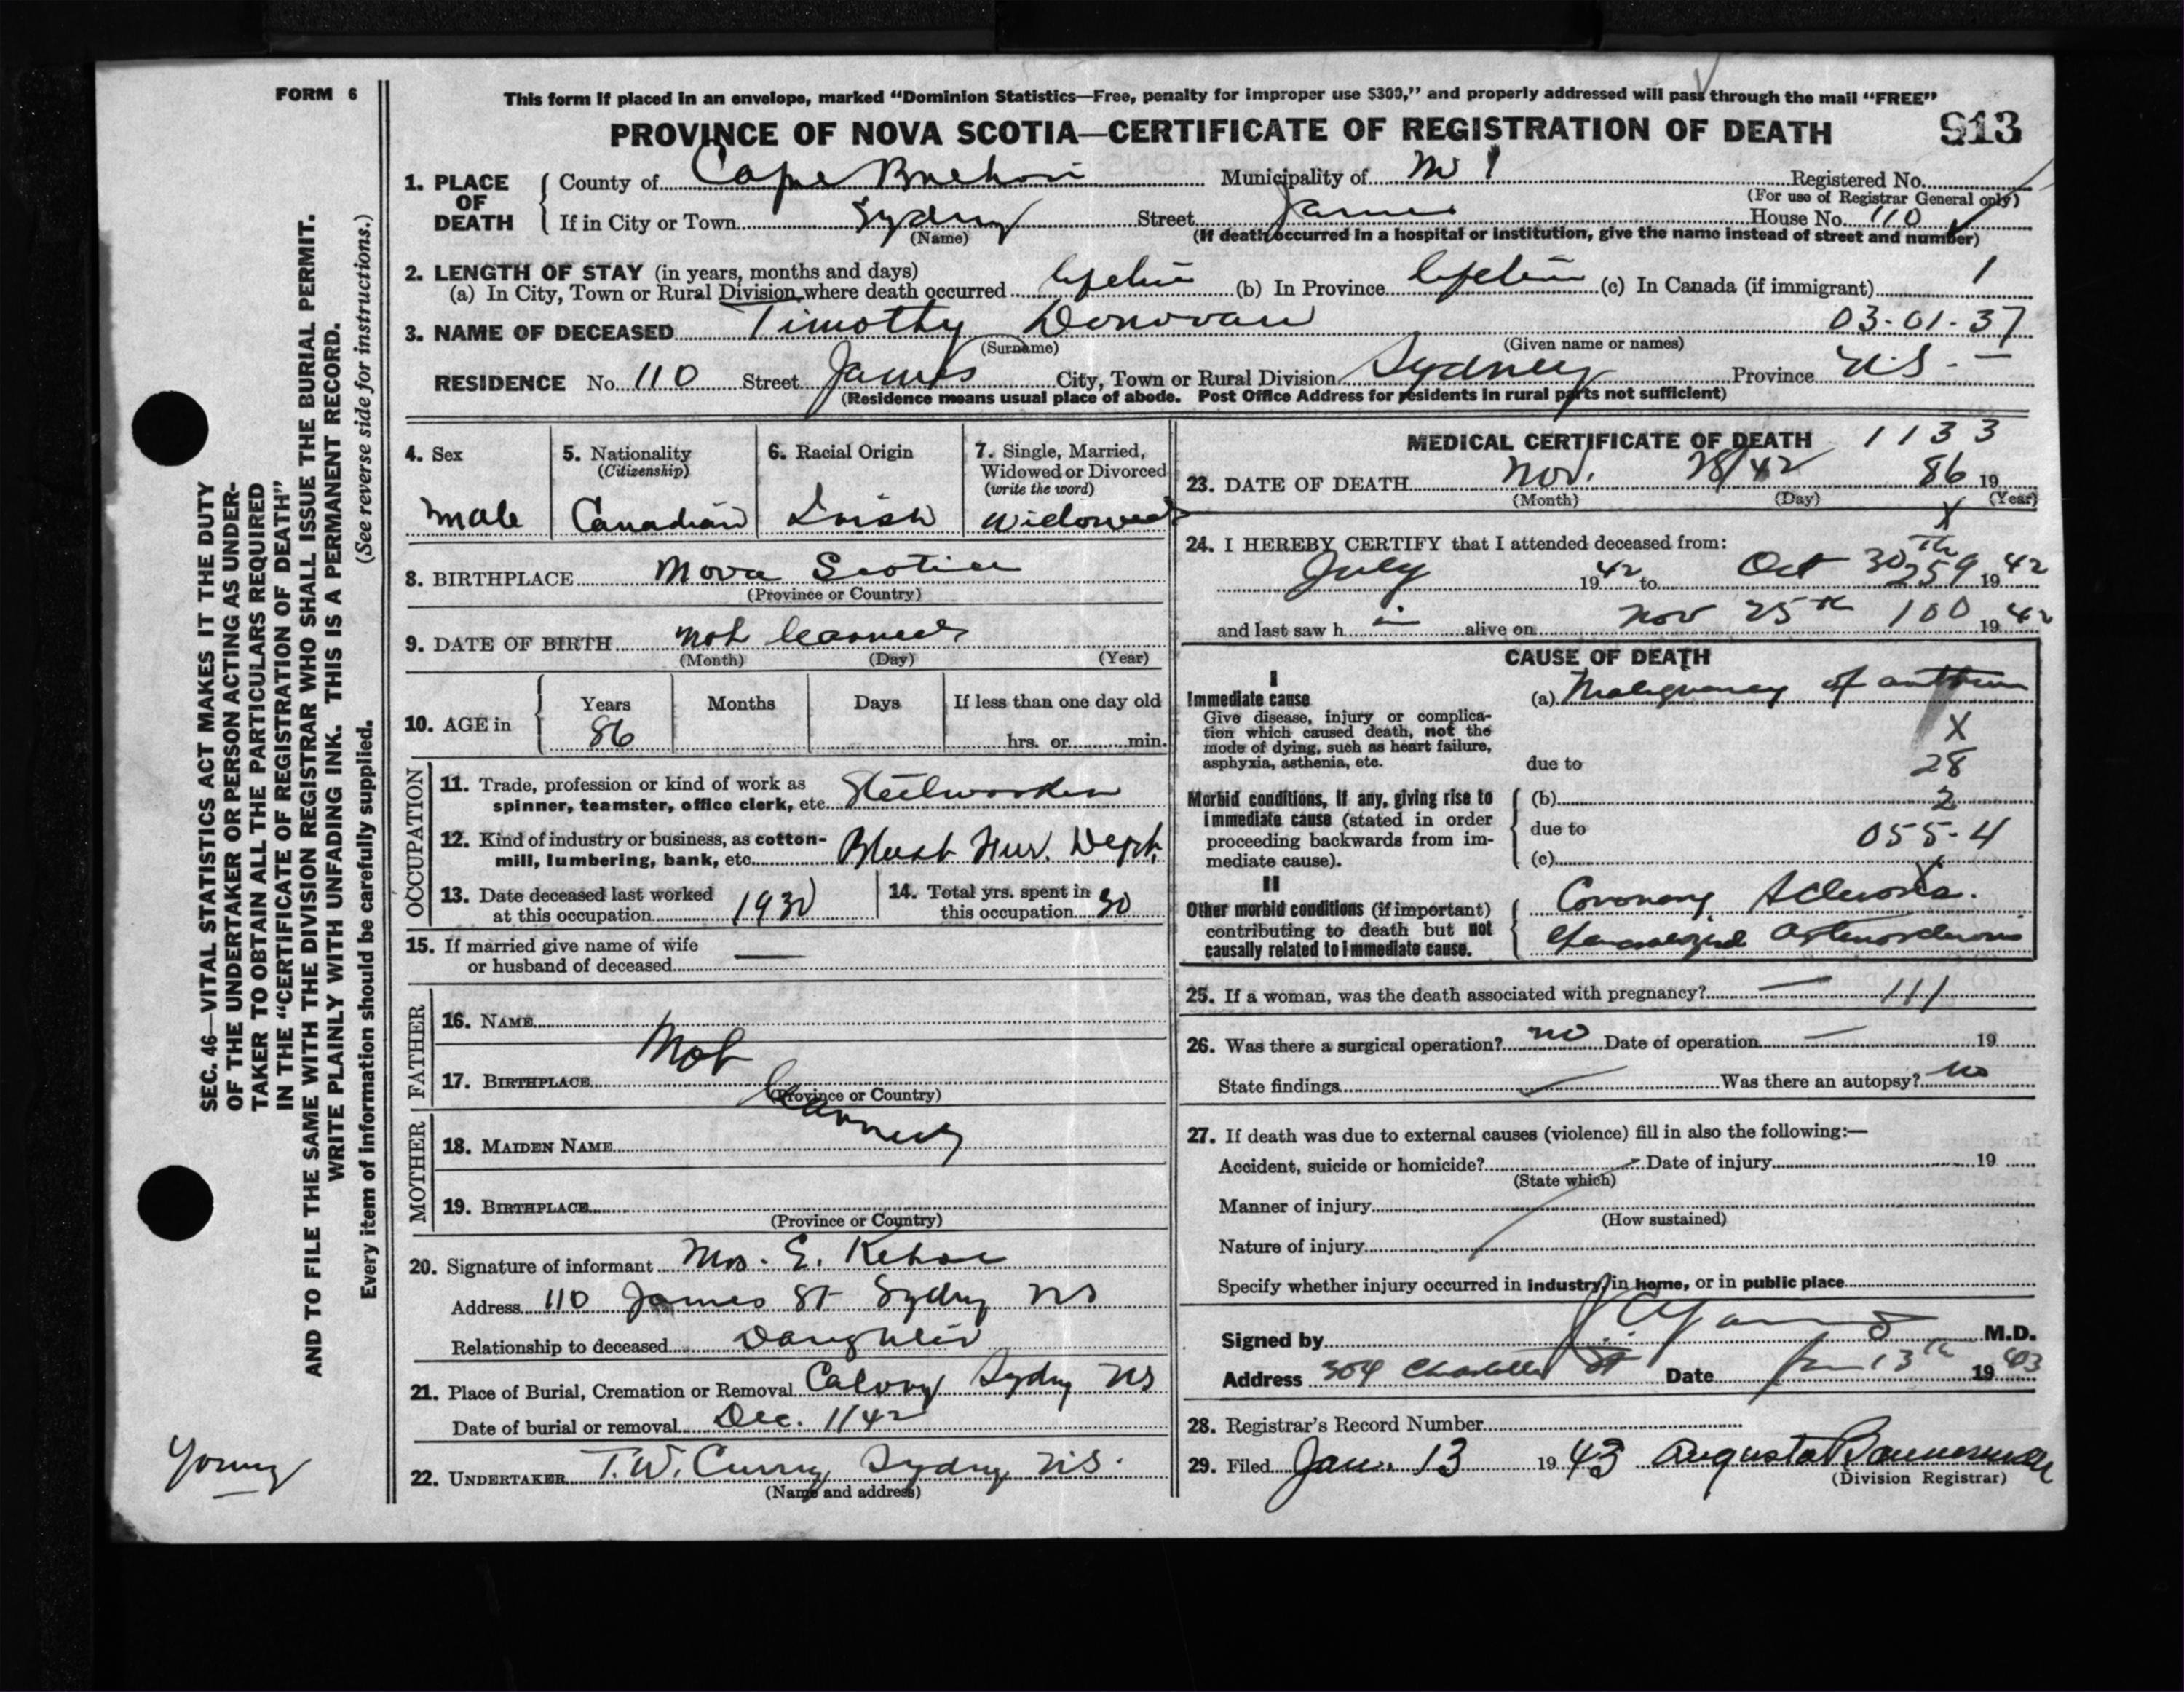 FORM 6
This form if placed in an envelope, marked "Dominion Statistics—Free, penalty for improper use $300," and properly addressed will pass through the mail "FREE"
PROVINCE OF NOVA SCOTIA—CERTIFICATE OF REGISTRATION OF DEATH 913
1. PLACE OF DEATH
County of Cape Breton Municipality of Registered No.
(For use of Registrar General only)
If in City or Town Sydney Street James House No. 110
(Name) (If death occurred in a hospital or institution, give the name instead of street and number)
2. LENGTH OF STAY (in years, months and days)
(a) In City, Town or Rural Division where death occurred lifetime (b) In Province lifetime (c) In Canada (if immigrant) 1
3. NAME OF DECEASED Timothy Donovan 03-01-37
(Surname) (Given name or names)
RESIDENCE No. 110 Street James City, Town or Rural Division Sydney Province N.S.
(Residence means usual place of abode. Post Office Address for residents in rural parts not sufficient)
4. Sex
male
5. Nationality
(Citizenship)
Canadian
6. Racial Origin
Irish
7. Single, Married,
Widowed or Divorced
(write the word)
Widowed
8. BIRTHPLACE Nova Scotia
(Province or Country)
9. DATE OF BIRTH not learned
(Month) (Day) (Year)
10. AGE in
Years Months Days If less than one day old
86 hrs. or min.
OCCUPATION
11. Trade, profession or kind of work as
spinner, teamster, office clerk, etc. Steelworker
12. Kind of industry or business, as cotton-
mill, lumbering, bank, etc. Blast Fur. Dept.
13. Date deceased last worked
at this occupation 1930
14. Total yrs. spent in
this occupation 30
15. If married give name of wife
or husband of deceased —
FATHER
16. NAME
Not
17. BIRTHPLACE
(Province or Country)
learned
MOTHER
18. MAIDEN NAME
19. BIRTHPLACE
(Province or Country)
20. Signature of informant Mrs. E. Kehoe
Address 110 James St Sydney NS
Relationship to deceased Daughter
21. Place of Burial, Cremation or Removal Calvary Sydney NS
Date of burial or removal Dec. 1/42
22. UNDERTAKER T.W. Curry Sydney N.S.
(Name and address)
MEDICAL CERTIFICATE OF DEATH 1133
23. DATE OF DEATH Nov. 28/42 86 19
(Month) (Day) (Year)
X
24. I HEREBY CERTIFY that I attended deceased from:
July 1942 to Oct 30th 259 1942
and last saw h alive on Nov 25th 100 1942
CAUSE OF DEATH
I
Immediate cause
Give disease, injury or complica-
tion which caused death, not the
mode of dying, such as heart failure,
asphyxia, asthenia, etc.
(a) Malignancy of antrum
X
due to 28
Morbid conditions, if any, giving rise to
immediate cause (stated in order
proceeding backwards from im-
mediate cause).
(b) 2
due to 055-4
(c) X
II
Other morbid conditions (if important)
contributing to death but not
causally related to immediate cause.
Coronary Sclerosis.
Generalized arteriosclerosis
25. If a woman, was the death associated with pregnancy? — 111
26. Was there a surgical operation? no Date of operation — 19
State findings Was there an autopsy? no
27. If death was due to external causes (violence) fill in also the following:—
Accident, suicide or homicide? Date of injury 19
(State which)
Manner of injury
(How sustained)
Nature of injury
Specify whether injury occurred in industry, in home, or in public place
Signed by Young M.D.
Address 304 Charlotte St Date Jan 13th 1943
28. Registrar's Record Number
29. Filed Jan. 13 1943 Augusta Bannerman
(Division Registrar)
SEC. 46—VITAL STATISTICS ACT MAKES IT THE DUTY
OF THE UNDERTAKER OR PERSON ACTING AS UNDER-
TAKER TO OBTAIN ALL THE PARTICULARS REQUIRED
IN THE "CERTIFICATE OF REGISTRATION OF DEATH"
AND TO FILE THE SAME WITH THE DIVISION REGISTRAR WHO SHALL ISSUE THE BURIAL PERMIT.
WRITE PLAINLY WITH UNFADING INK. THIS IS A PERMANENT RECORD.
Every item of information should be carefully supplied. (See reverse side for instructions.)
Young